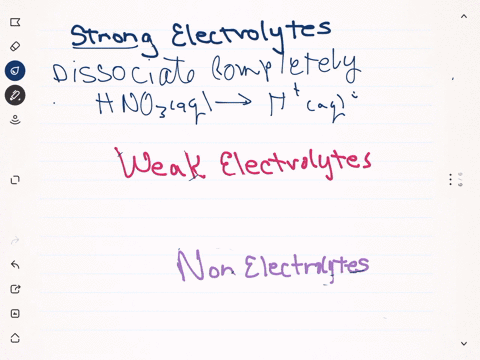 Strong Electrolytes
Dissociate Completely
HNO3(aq) → H+ (aq)
Weak Electrolytes
Non Electrolytes